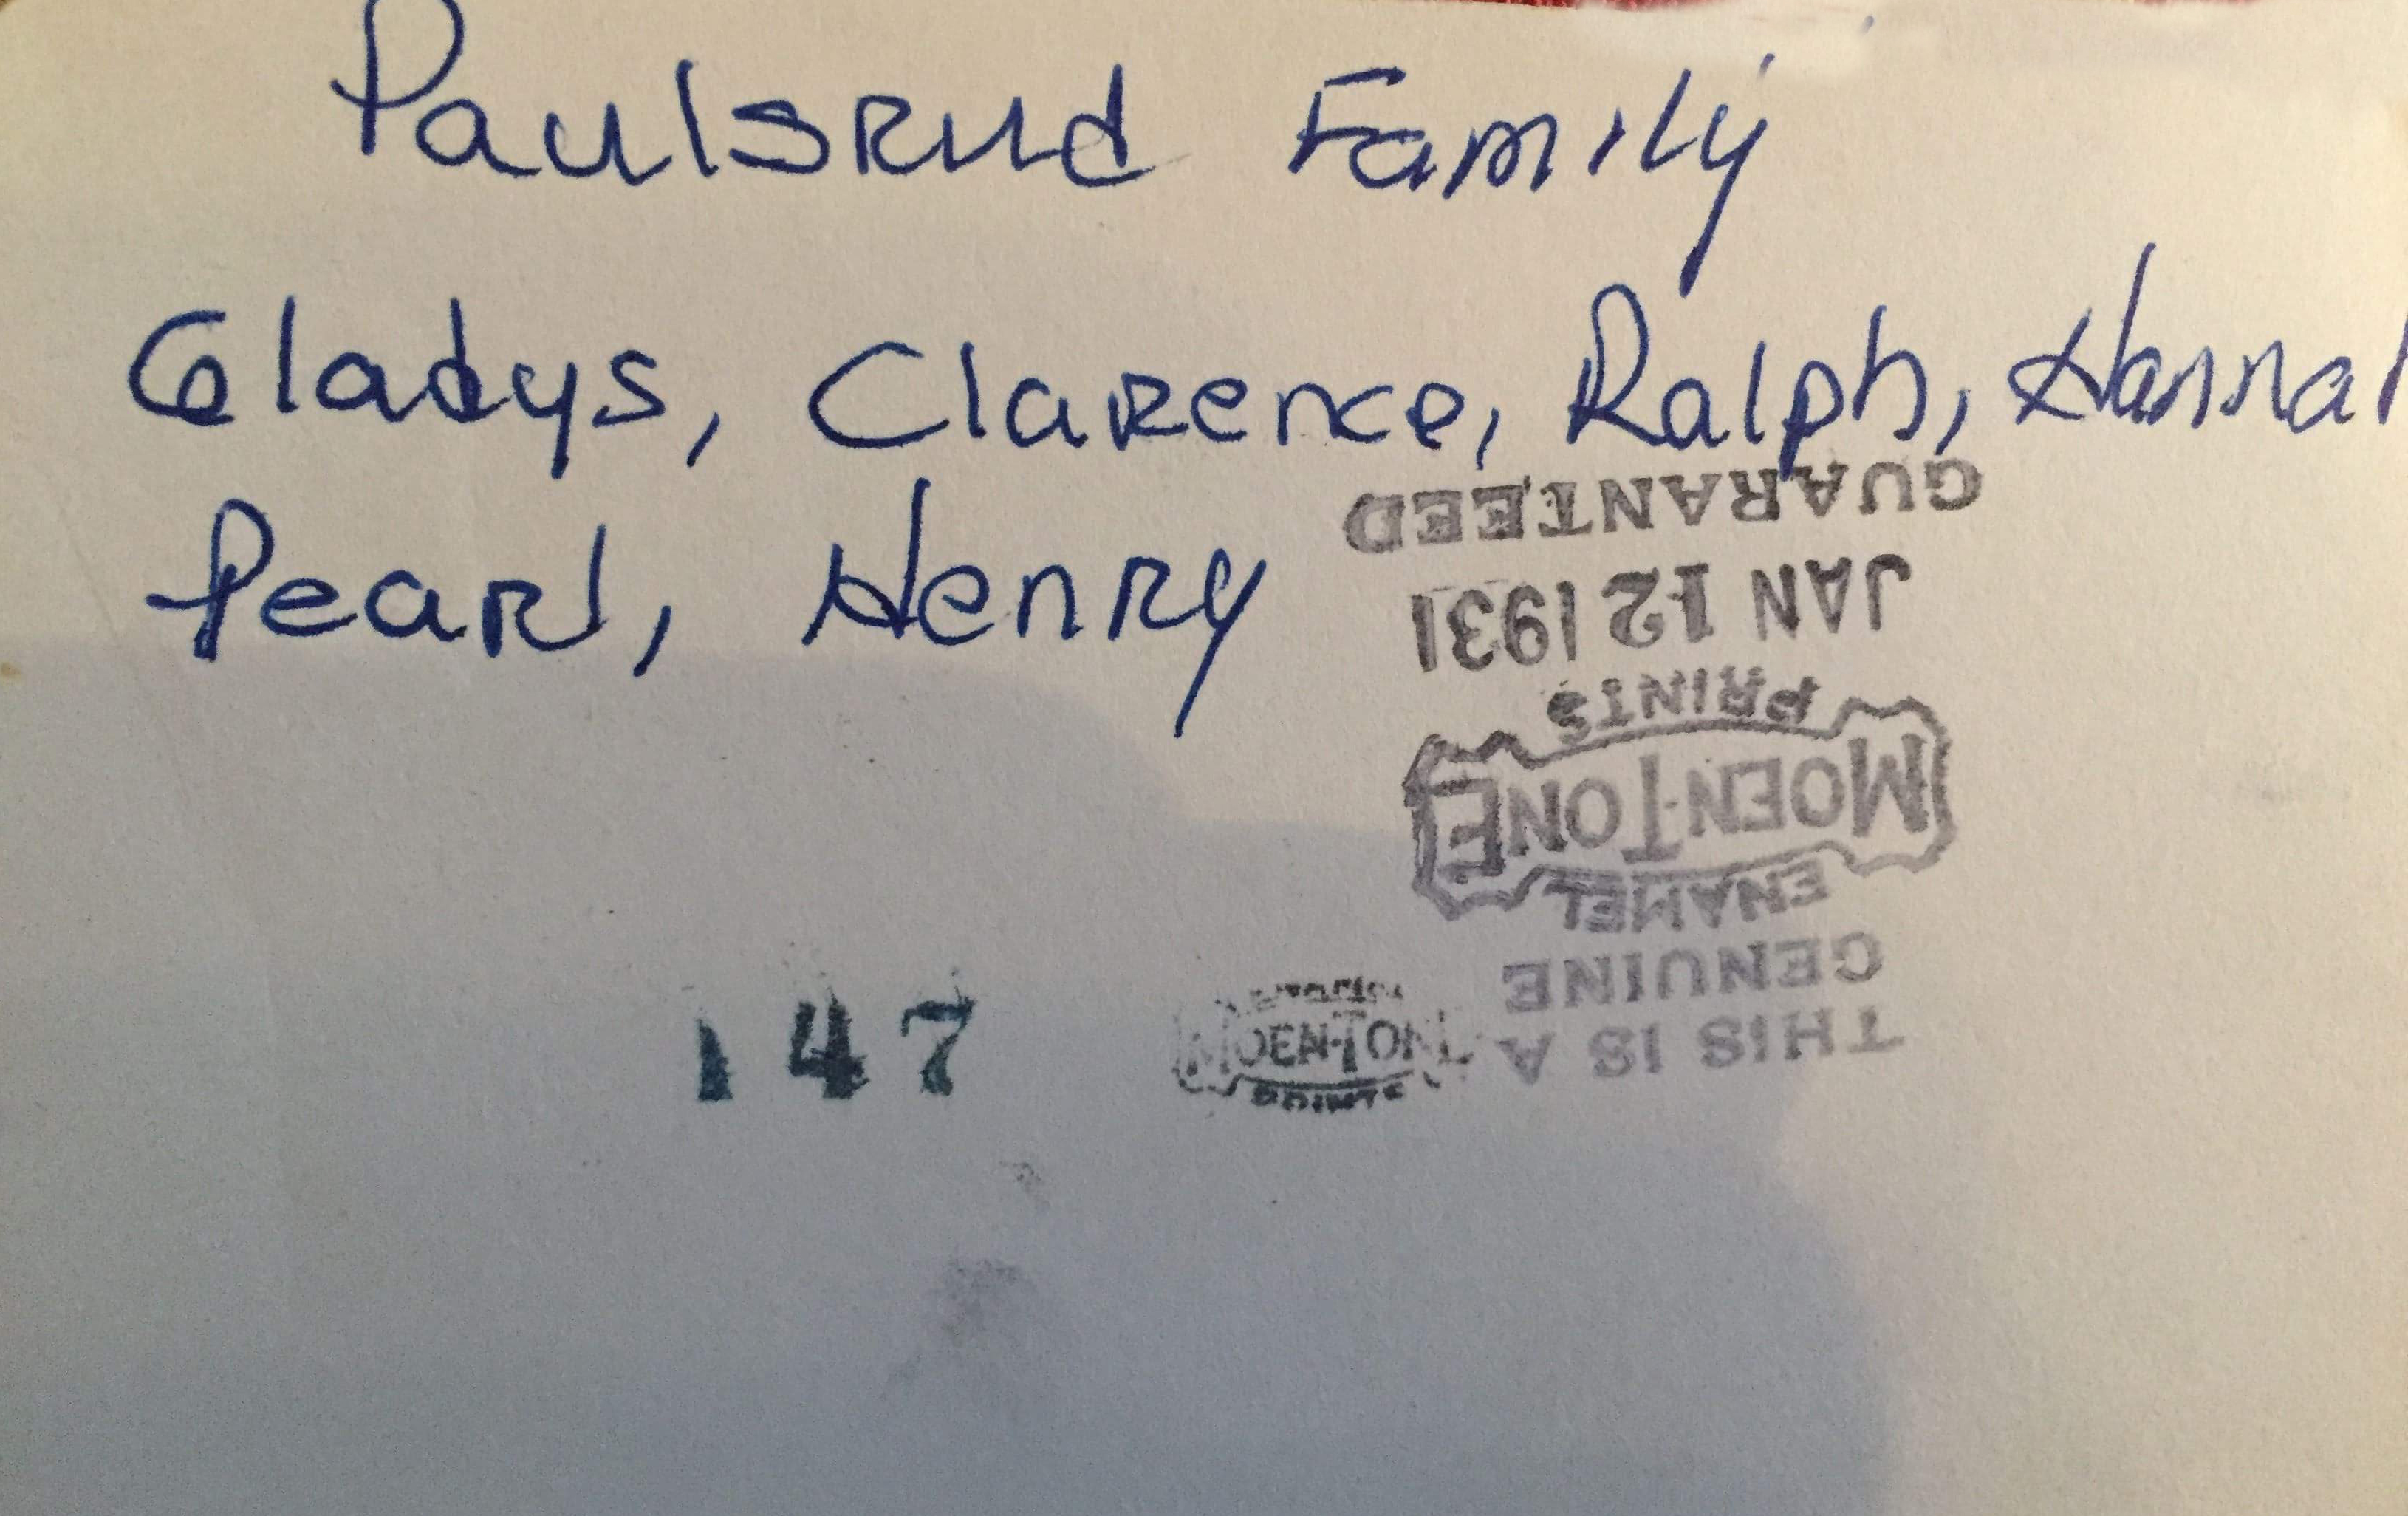 Paulsrud Family
Gladys, Clarence, Ralph, Hanna
Pearl, Henry
THIS IS A
GENUINE
ENAMEL
MOEN-TONE
PRINTS
JAN 12 1931
GUARANTEED
147
MOEN-TONE
PRINTS